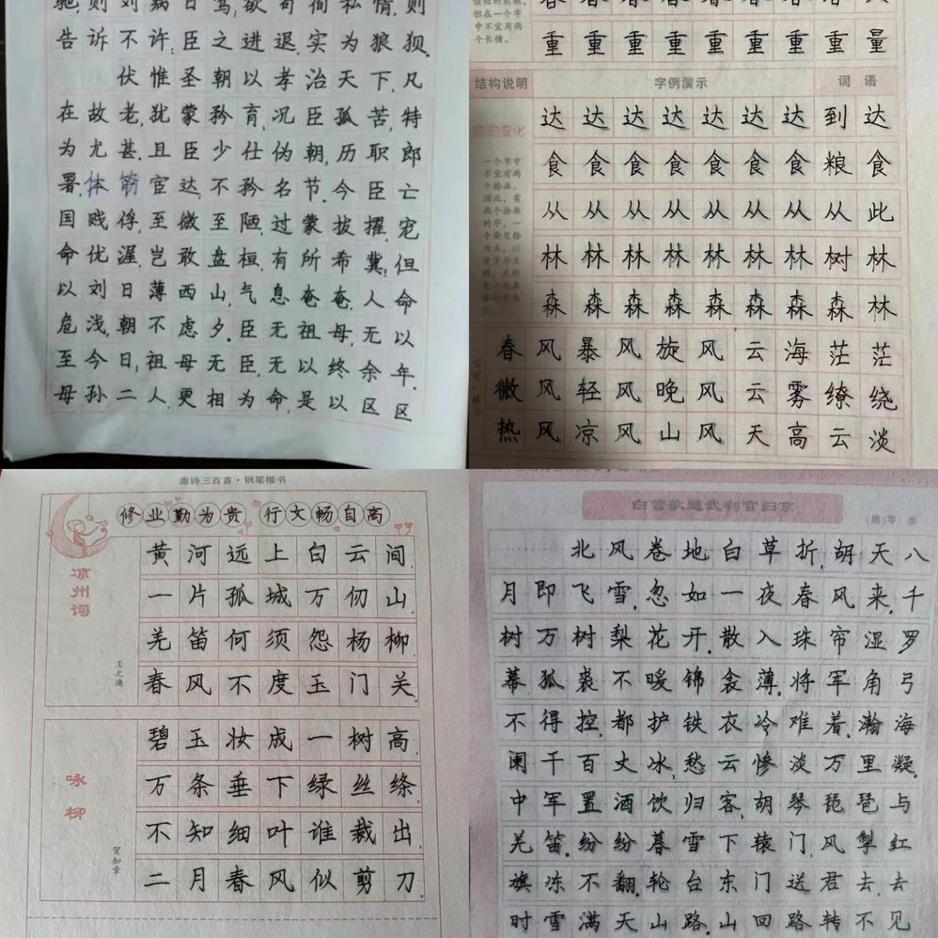 驰,则刘病日笃,欲苟徇私情,则
告诉不许;臣之进退,实为狼狈。
伏惟圣朝以孝治天下,凡
在故老,犹蒙矜育,况臣孤苦,特
为尤甚,且臣少仕伪朝,历职郎
署,体筋宦达,不矜名节。今臣亡
国贱俘,至微至陋,过蒙拔擢,宠
命优渥,岂敢盘桓,有所希冀!但
以刘日薄西山,气息奄奄,人命
危浅,朝不虑夕。臣无祖母,无以
至今日,祖母无臣,无以终余年。
母孙二人,更相为命,是以区区
但在一个字
中不宜用两
个长横。
春春春春春春春春
重重重重重重重重量
结构说明 字例演示 词语
达达达达达达达到达
食食食食食食食粮食
从从从从从从从从此
林林林林林林林树林
森森森森森森森森林
一个字中
不宜有两
个捺画,
因此,有
两个捺画
的字,一
个要变捺
为点,
春风暴风旋风云海茫茫
微风轻风晚风云雾缭绕
热风凉风山风天高云淡
唐诗三百首·钢笔楷书
修业勤为贵 行文畅自高
凉州词
王之涣
黄河远上白云间,
一片孤城万仞山。
羌笛何须怨杨柳,
春风不度玉门关。
咏柳
贺知章
碧玉妆成一树高,
万条垂下绿丝绦。
不知细叶谁裁出,
二月春风似剪刀。
白雪歌送武判官归京
(唐)岑 参
北风卷地白草折,胡天八
月即飞雪。忽如一夜春风来,千
树万树梨花开。散入珠帘湿罗
幕,狐裘不暖锦衾薄。将军角弓
不得控,都护铁衣冷难着。瀚海
阑干百丈冰,愁云惨淡万里凝。
中军置酒饮归客,胡琴琵琶与
羌笛。纷纷暮雪下辕门,风掣红
旗冻不翻。轮台东门送君去,去
时雪满天山路。山回路转不见